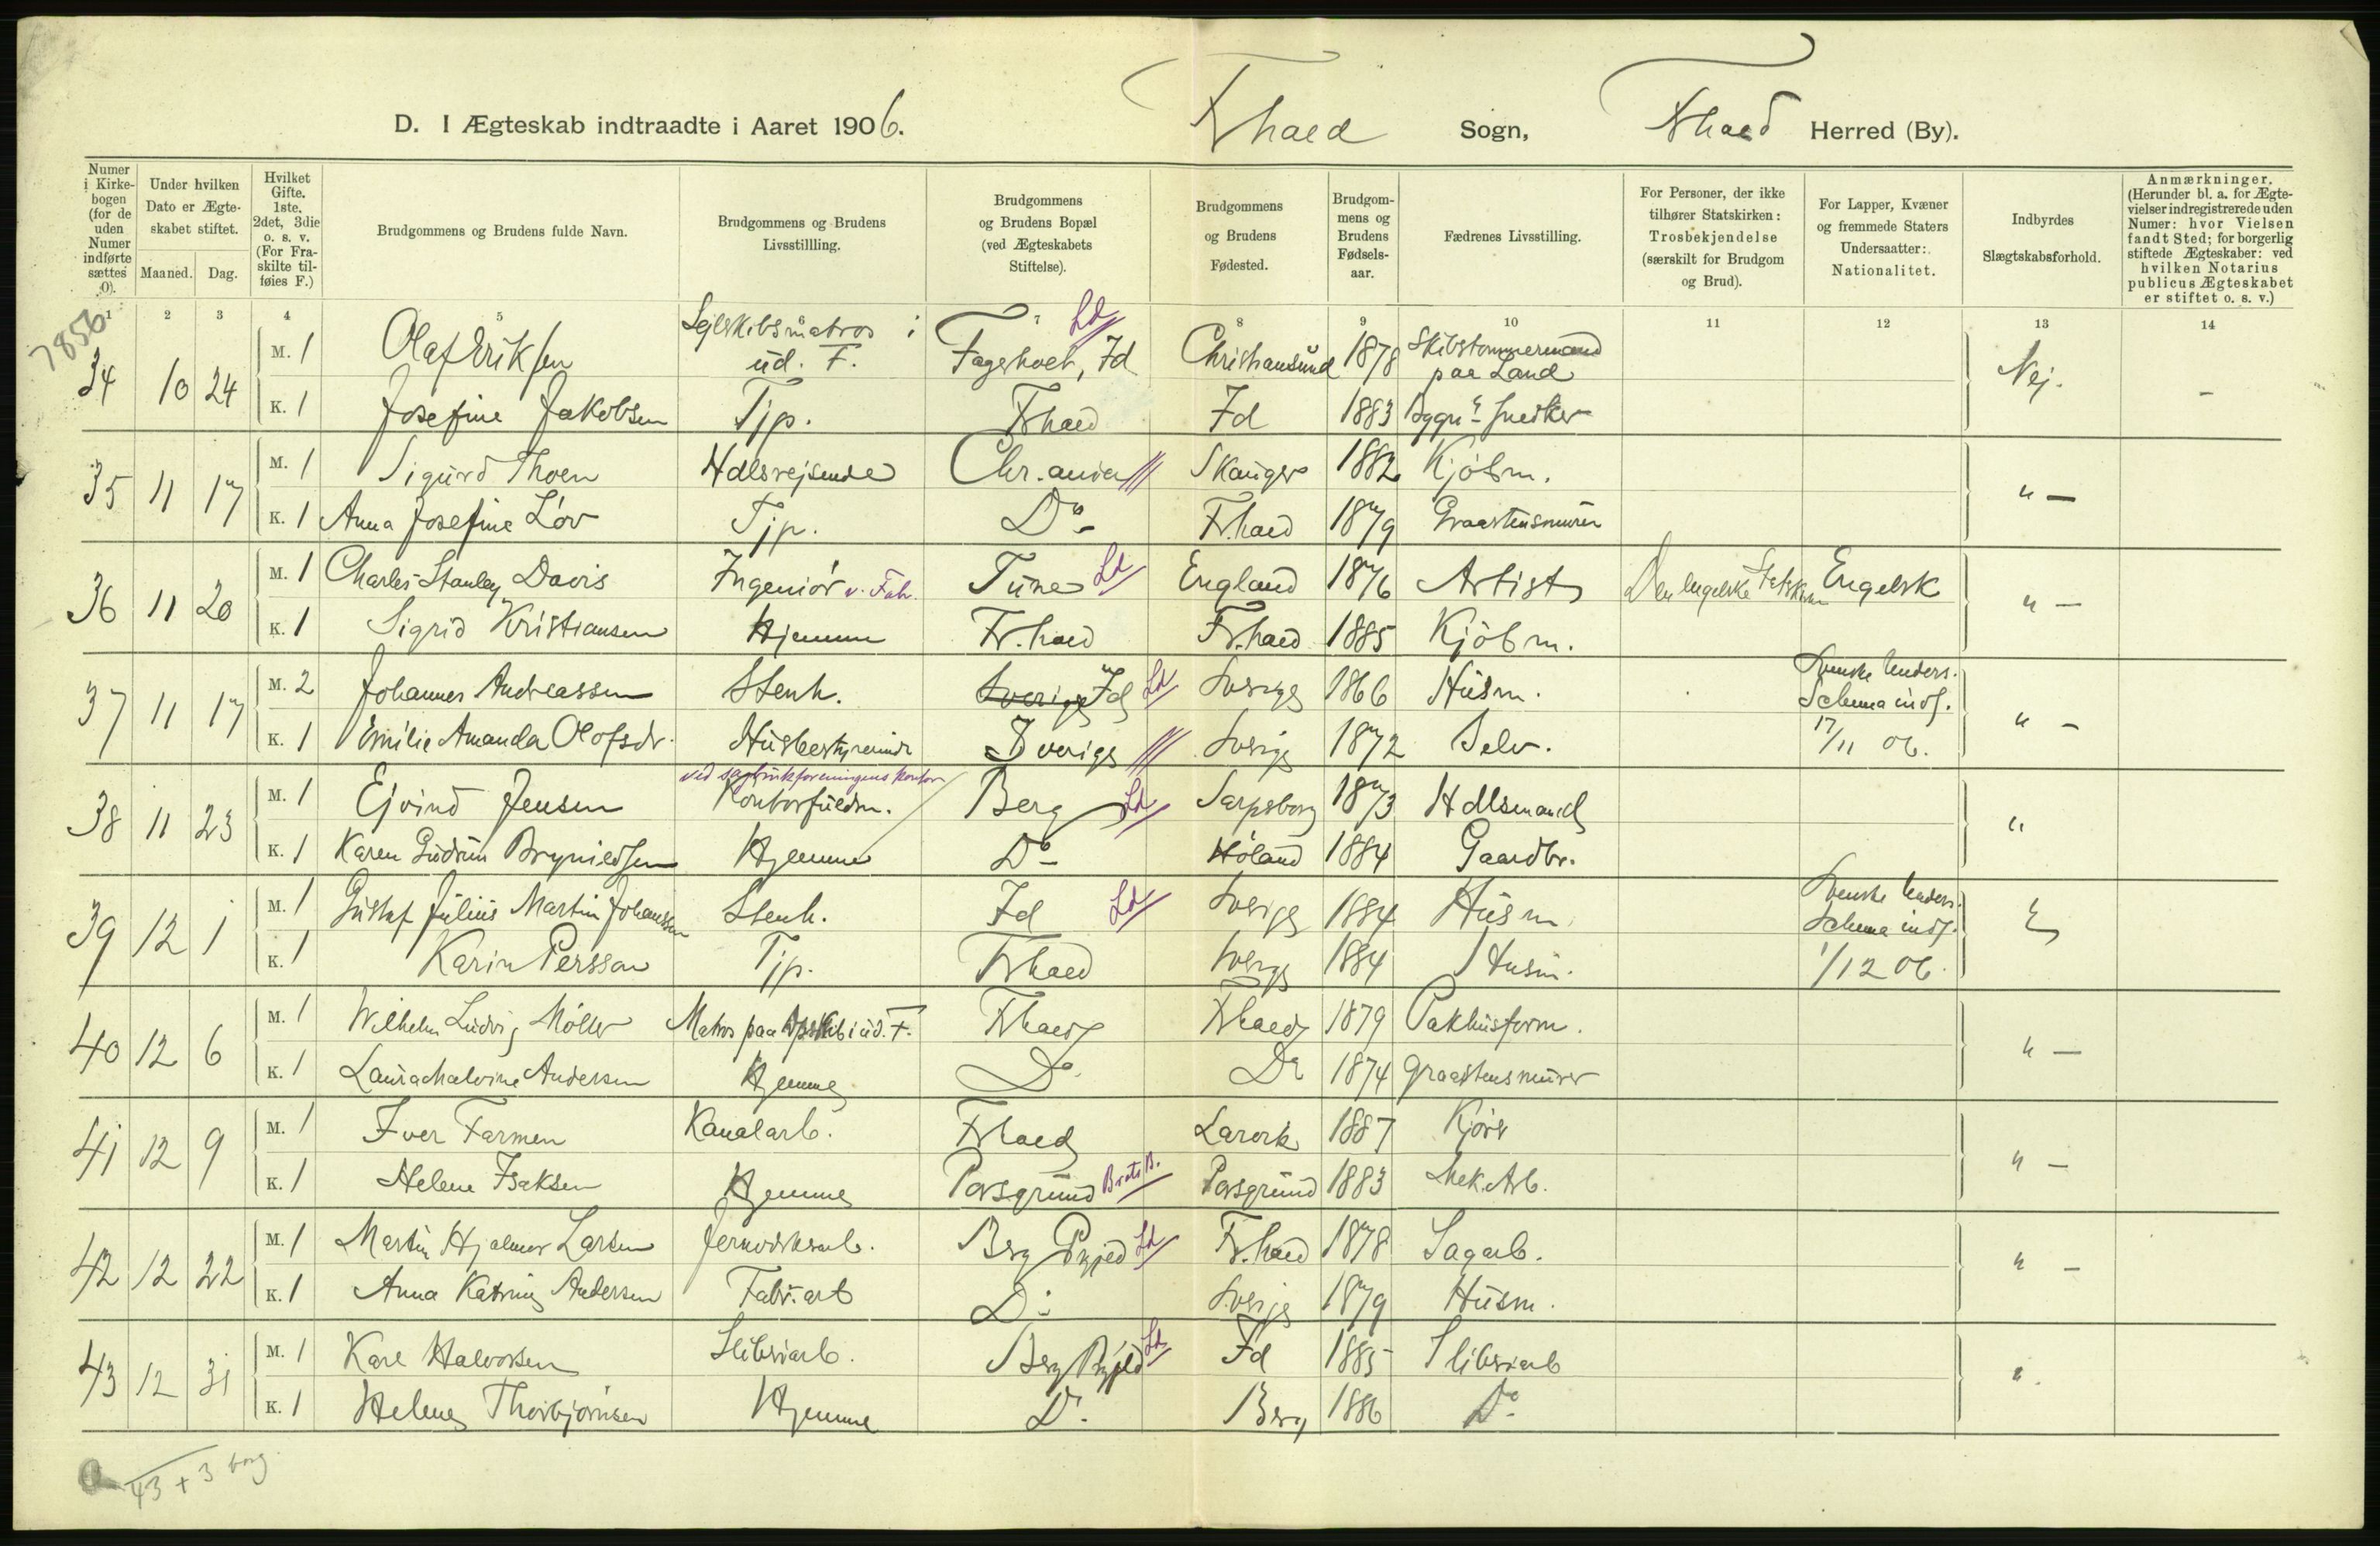 D. I Ægteskab indtraadte i Aaret 1906. Fr.hald Sogn, Fr.hald Herred (By).
Numer i Kirkebogen (for de uden Numer indførte sættes 0).
Under hvilken Dato er Ægteskabet stiftet.
Maaned. Dag.
Hvilket Gifte. 1ste, 2det, 3die o. s. v. (For Fraskilte tilføies F.)
Brudgommens og Brudens fulde Navn.
Brudgommens og Brudens Livsstillling.
Brudgommens og Brudens Bopæl (ved Ægteskabets Stiftelse).
Brudgommens og Brudens Fødested.
Brudgommens og Brudens Fødselsaar.
Fædrenes Livsstilling.
For Personer, der ikke tilhører Statskirken: Trosbekjendelse (særskilt for Brudgom og Brud).
For Lapper, Kvæner og fremmede Staters Undersaatter: Nationalitet.
Indbyrdes Slægtskabsforhold.
Anmærkninger. (Herunder bl. a. for Ægtevielser indregistrerede uden Numer: hvor Vielsen fandt Sted; for borgerlig stiftede Ægteskaber: ved hvilken Notarius publicus Ægteskabet er stiftet o. s. v.)
1 2 3 4 5 6 7 8 9 10 11 12 13 14
7856
34 10 24 M. 1 Olaf Eriksen Sejlskibsmatros i ud. F. Fagerholt, Id Ld Christiansund 1878 Skibstømmermand paa Land Nej. -
K. 1 Josefine Jakobsen Tjp. Fr.hald Id 1883 Snedker
35 11 17 M. 1 Sigurd Thoen Hdlsrejsende Chr.ania Skauger 1882 Kjøbm. " -
K. 1 Anna Josefine Löv Tjp. Do Fr.hald 1879 Graastensmurer
36 11 20 M. 1 Charles Stanley Davis Ingeniör v. Fabr. Tune Ld England 1876 Artist Den engelske Statskirke Engelsk " -
K. 1 Sigrid Kristiansen Hjemme Fr.hald Fr.hald 1885 Kjöbm.
37 11 17 M. 2 Johannes Andreassen Stenh. Sverige Id Ld Sverige 1866 Husm. Svenske Unders. Schema inds. 17/11 06. " -
K. 1 Emilie Amanda Olofsdr. Husbestyrerinde Sverige Sverige 1872 Selv.
38 11 23 M. 1 Ejvind Jensen ved kontor Kontorfuldm. Berg Ld Sarpsborg 1873 Hdlsmand "
K. 1 Karen Gudrun Brynildsen Hjemme Do Höland 1884 Gaardbr.
39 12 1 M. 1 Gustaf Julius Martin Johansson Stenh. Id Ld Sverige 1884 Husm Svenske Unders. Schema inds. 1/12 06.
K. 1 Karin Persson Tjp. Fr.hald Sverge 1884 Husm.
40 12 6 M. 1 Wilhelm Ludvig Möller Matros paa i ud. F. Fr.hald Fr.hald 1879 Pakhusform. " -
K. 1 Laura Malvine Andersen Hjemme Do Do 1874 Graastensmurer
41 12 9 M. 1 Iver Farmen Kanalarb. Fr.hald Larvik 1887 Kjörer " -
K. 1 Helene Isaksen Hjemme Porsgrund Brats.B. Porsgrund 1883 Mek.Arb.
42 12 22 M. 1 Martin Hjalmar Larsen Jernverksarb. Berg Ld Fr.hald 1878 Sagarb. " -
K. 1 Anna Katrine Andersen Fabr.arb Do Sverige 1879 Husm.
43 12 31 M. 1 Karl Halvorsen Sliberiarb. Berg Ld Id 1885 Sliberiarb "
K. 1 Helene Thorbjörnsen Hjemme Do Berg 1886 Do
43 + 3 borg